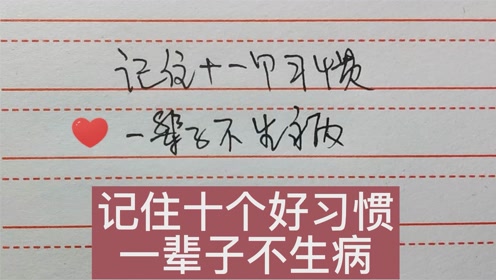 记住十一个习惯
一辈子不生病
记住十个好习惯
一辈子不生病